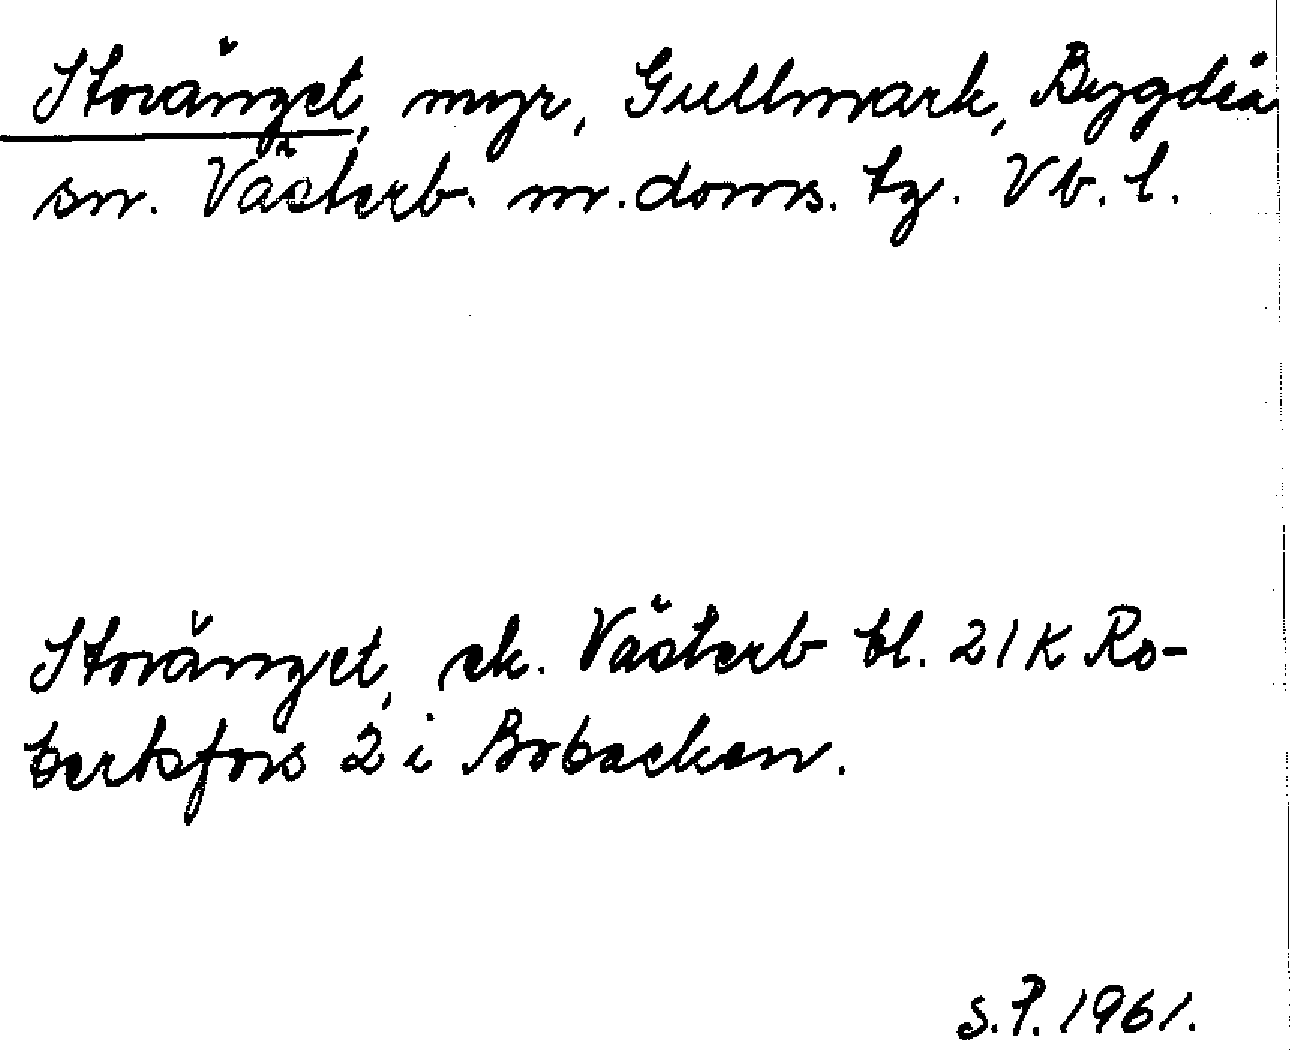 Storänget, myr, Gullmark, Bygdeå
sn. Västerb. n. doms. tg. Vb. l.
Storänget, ek. Västerb bl. 21K Ro-
bertsfors 2 i Bobacken.
S.P. 1961.